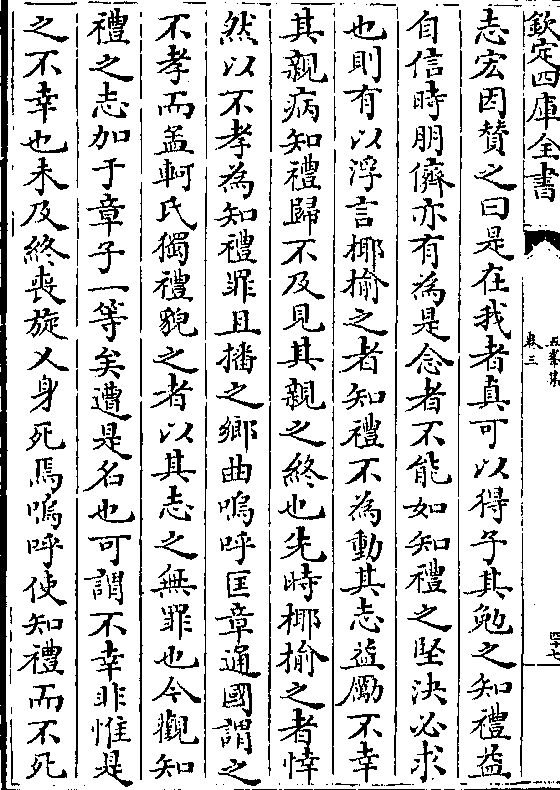 欽定四庫全書
五峯集
卷三
四十七
志宏因贊之曰是在我者真可以得乎其勉之知禮益
自信時朋儕亦有為是念者不能如知禮之堅決必求
也則有以浮言揶揄之者知禮不為動其志益勵不幸
其親病知禮歸不及見其親之終也先時揶揄之者悻
然以不孝為知禮罪且播之鄉曲嗚呼匡章通國謂之
不孝而孟軻氏獨禮貌之者以其志之無罪也今觀知
禮之志加于章子一等矣遭是名也可謂不幸非惟是
之不幸也未及終喪旋又身死焉嗚呼使知禮而不死